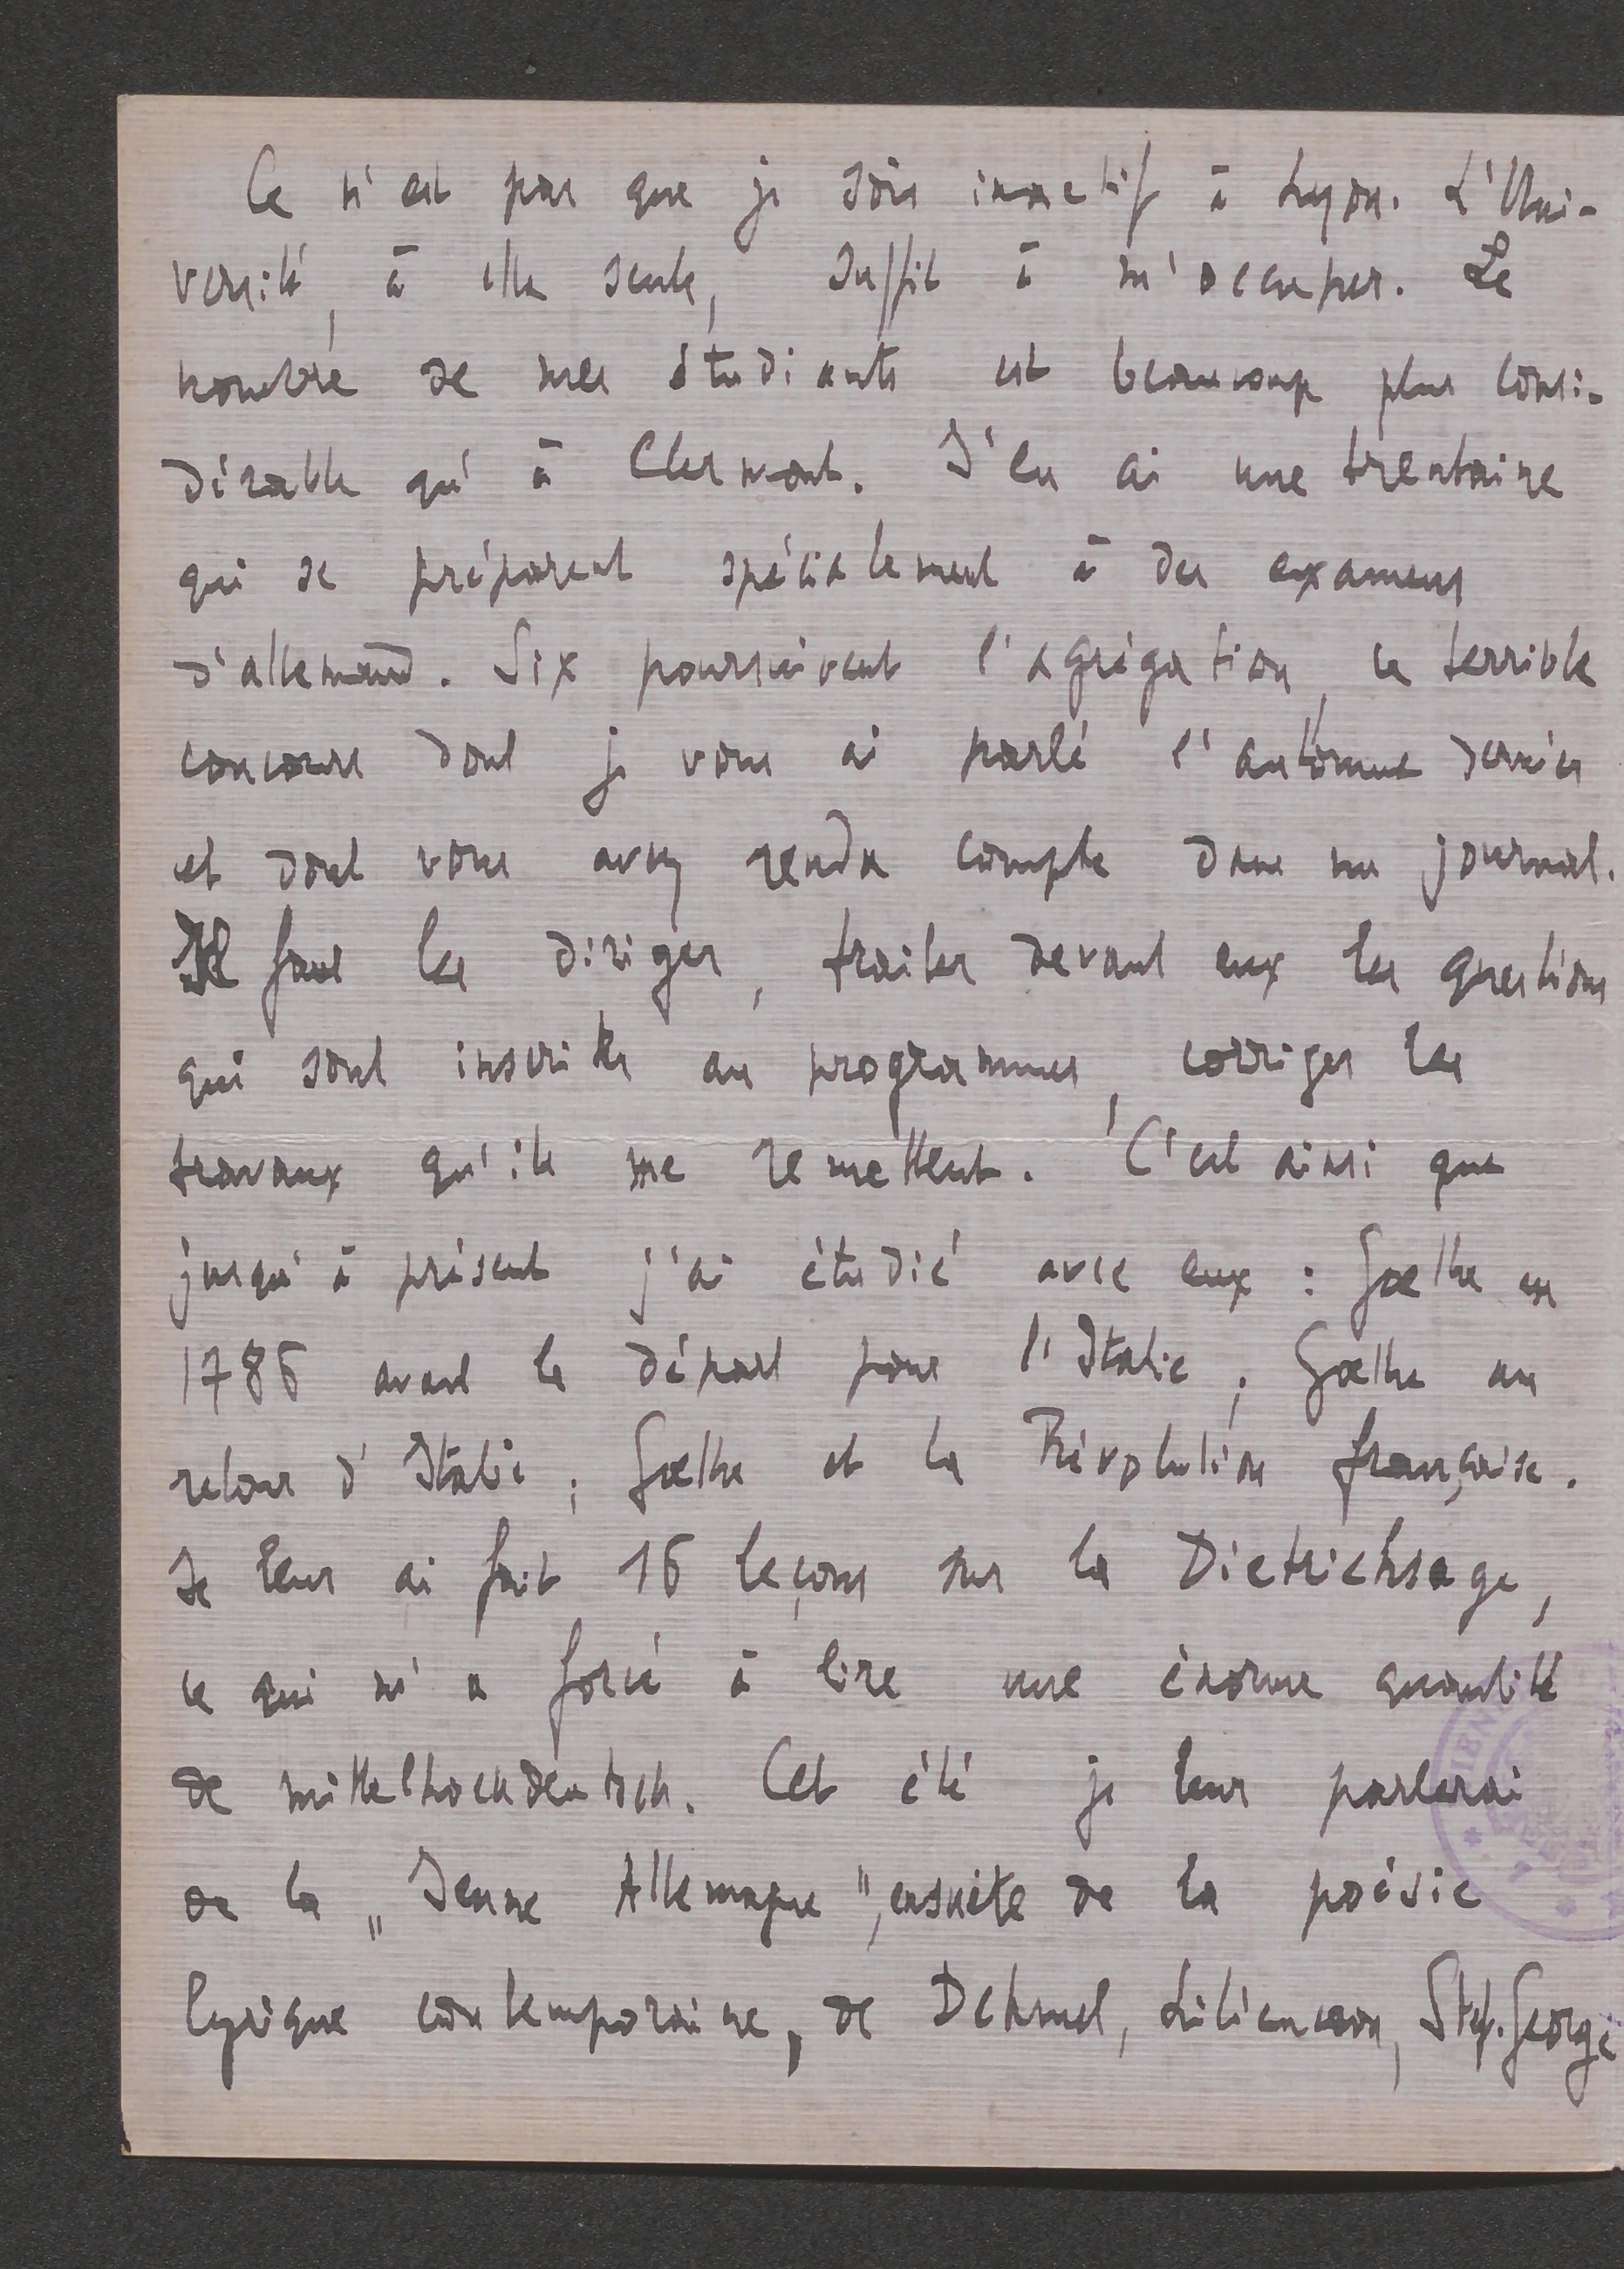 Ce n'est pas que je sois inactif à Lyon. L'Uni-
versité, à elle seule, suffit à m'occuper. Le
nombre de mes étudiants est beaucoup plus consi-
dérable qu'à Clermont. J'en ai une trentaine
qui se préparent spécialement à des examens
d'allemand. Six poursuivent l'agrégation, ce terrible
concours dont je vous ai parlé l'automne dernier
et dont vous avez rendu compte dans un journal.
Il faut les diriger, traiter devant eux les questions
qui sont inscrites au programmes, corriger les
travaux qu'ils me remettent. C'est ainsi que
jusqu'à présent j'ai étudié avec eux : Goethe en
1786 avant le départ pour l'Italie ; Goethe au
retour d'Italie ; Goethe et la Révolution française.
Je leur ai fait 16 leçons sur la Dietrichsage,
ce qui m'a forcé à lire une énorme quantité
de mittelhochdeutsch. Cet été je leur parlerai
de la „Jeune Allemagne", ensuite de la poésie
lyrique contemporaine, de Dehmel, Liliencron, Stef. George